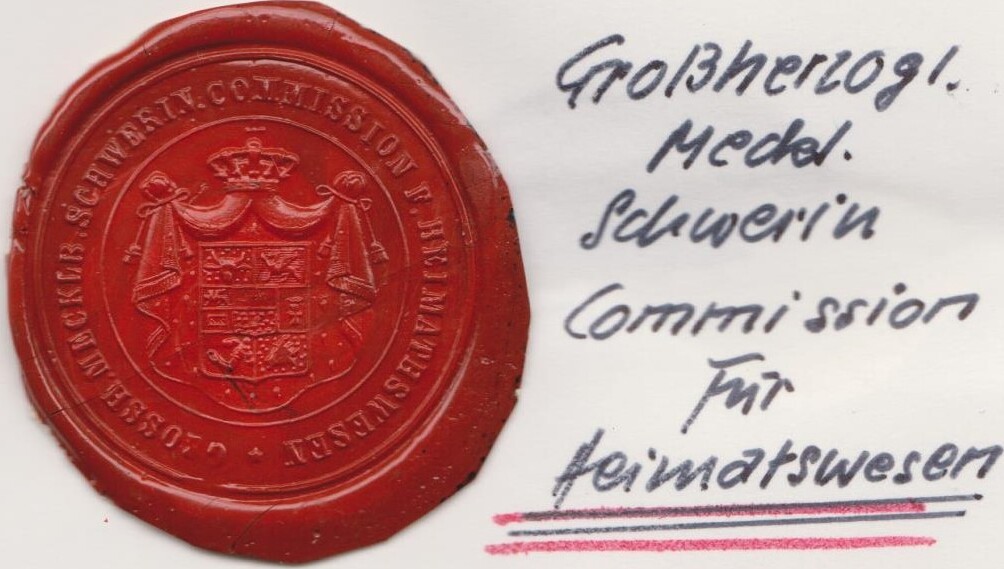 GROSSH. MECKLB. SCHWERIN. COMMISSION F. HEIMATHSWESEN
Großherzogl.
Meckl.
Schwerin
Commission
Für
Heimatswesen